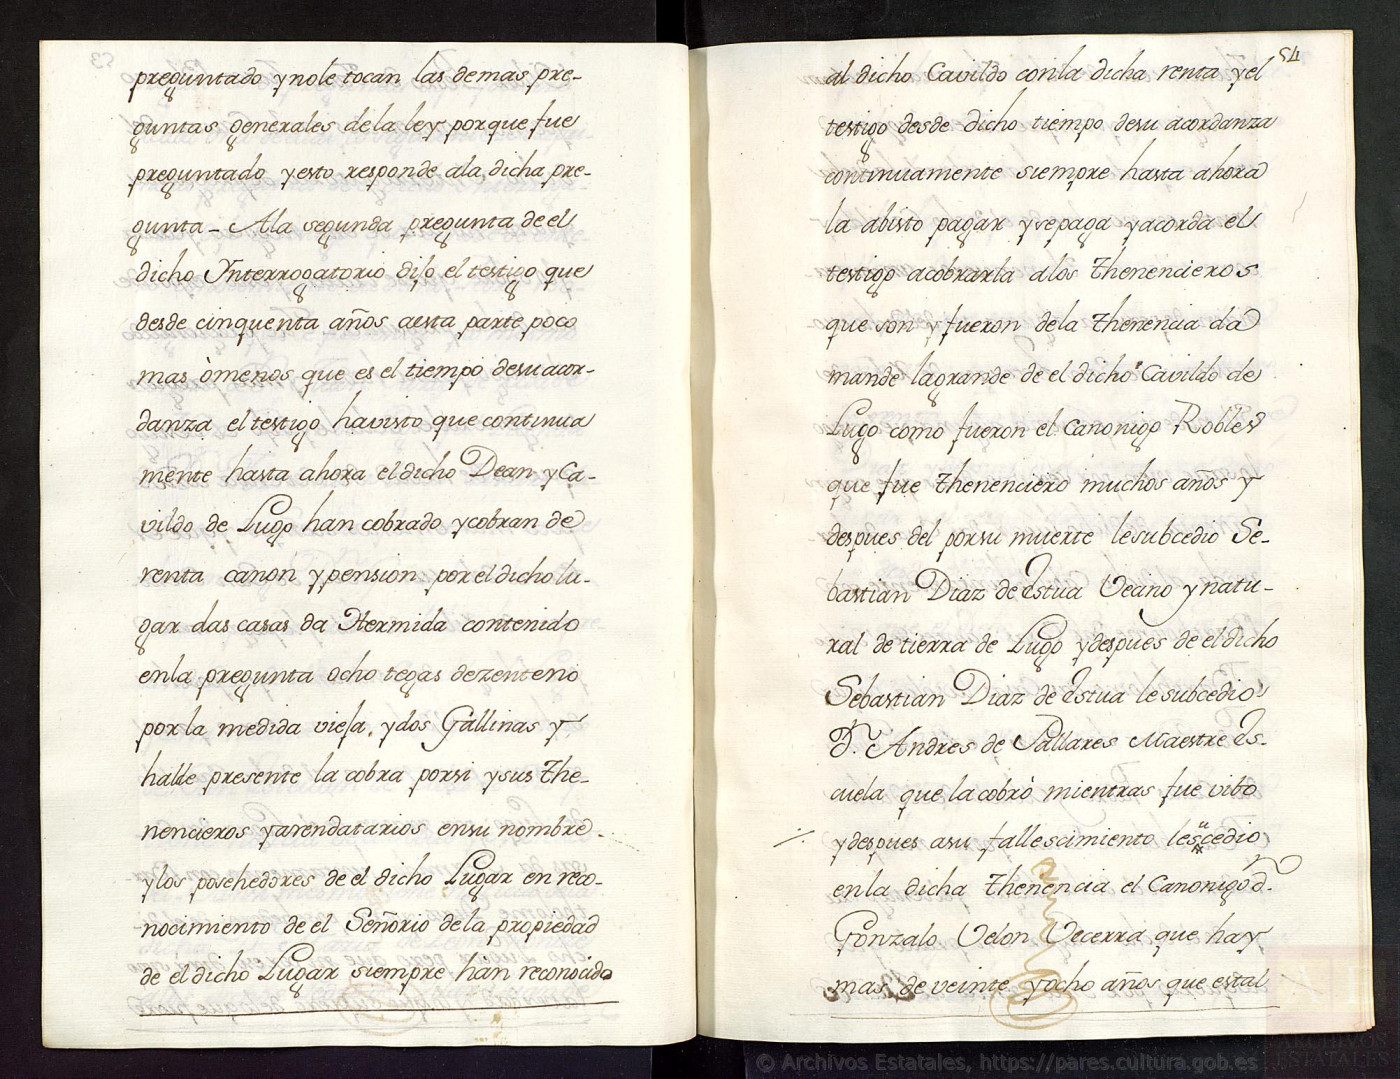 preguntado y nole tocan las demas pre-
guntas generales dela ley porque fue
preguntado yesto responde ala dicha pre-
gunta - Ala segunda pregunta de el
dicho Ynterrogatorio dijo el testigo que
desde cinquenta años aesta parte poco
mas ò menos que es el tiempo desu acor-
danza el testigo havisto que continua
mente hasta ahora el dicho Dean y Ca-
vildo de Lugo han cobrado y cobran de
renta canon y pension por el dicho lu-
gar das casas da Hermida contenido
enla pregunta ocho tegas dezenteno
por la medida vieja, y dos Gallinas y
halde presente la cobra porsi y sus the-
nencieros y arendatarios ensu nombre
y los posehedores de el dicho Lugar en reco-
nocimiento de el Señorio dela propiedad
de el dicho Lugar siempre hàn reconocido
54
al dicho Cavildo conla dicha renta y el
testigo desde dicho tiempo desu acordanza
continuamente siempre hasta ahora
la abisto pagar y sepaga y acorda el
testigo acobrarla alos thenencieros
que son y fueron dela thenencia da
mande lagrande de el dicho Cavildo de
Lugo como fueron el Canonigo Robles
que fue thenenciero muchos años y
despues del porsu muerte lesubcedio Se-
bastian Diaz de Estua Vecino y natu-
ral de tierra de Lugo y despues de el dicho
Sebastian Diaz de Estua le subcedio
D. Andres de Pallares Maestre Es-
cuela que la cobrò mientras fue vibo
y despues asu fallescimiento lesucedio
enla dicha thenencia el Canonigo D.
Gonzalo Velon Vecerra que hay
mas de veinte y ocho años que estal
© Archivos Estatales, https://pares.cultura.gob.es
ARCHIVOS
ESTATALES